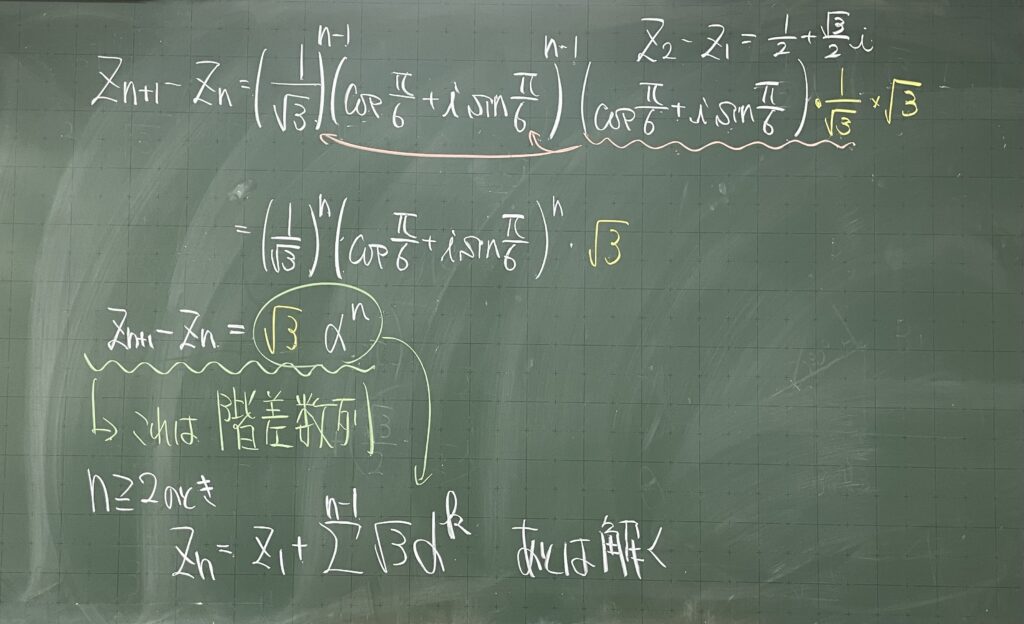 Z₂ - Z₁ = 1/2 + √3/2 i
Zₙ₊₁ - Zₙ = (1/√3)ⁿ⁻¹ (cos π/6 + i sin π/6)ⁿ⁻¹ (cos π/6 + i sin π/6) · 1/√3 × √3
= (1/√3)ⁿ (cos π/6 + i sin π/6)ⁿ · √3
Zₙ₊₁ - Zₙ = √3 αⁿ
↳ これは 階差数列
n ≧ 2 のとき
Zₙ = Z₁ + Σⁿ⁻¹ √3 αᵏ あとは解く